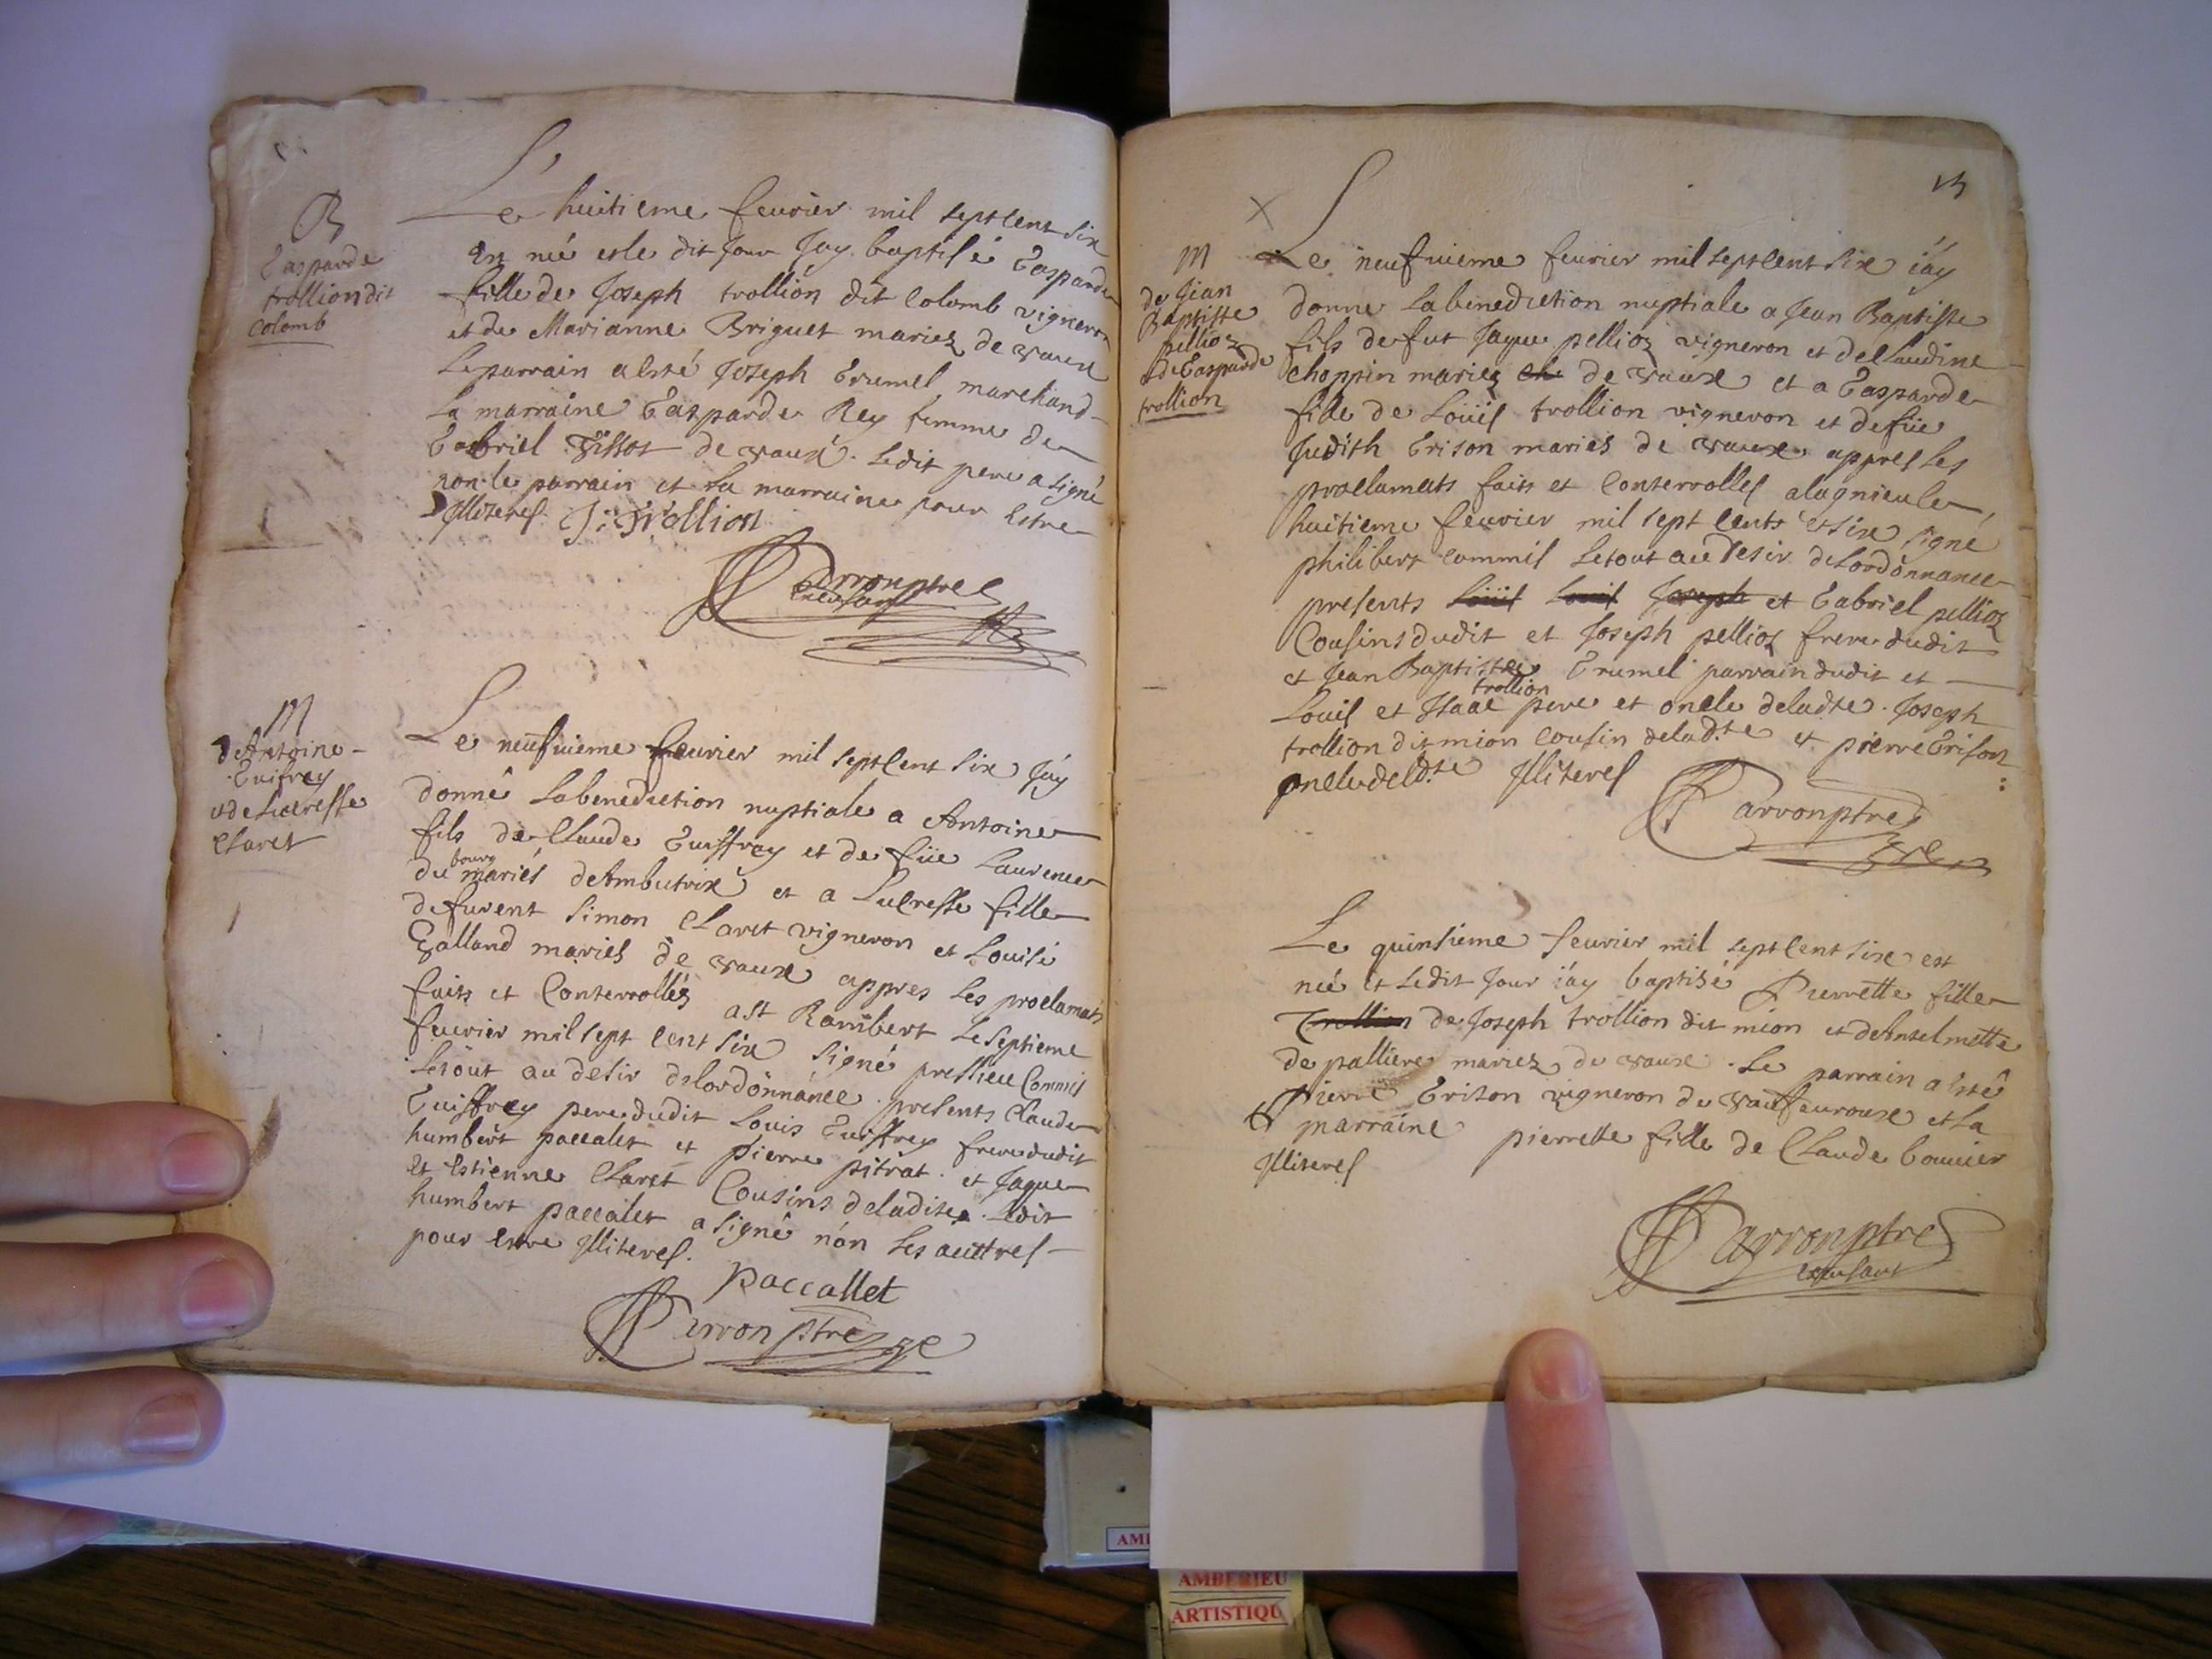 B
Gasparde
trollion dit
Colomb
Le huitieme feurier mil sept cent six
est né et le dit Jour Jay baptisé Gasparde
fille de Joseph trollion dit Colomb vigneron
et de Marianne Briguet mariez de vaux
Le parrain a esté Joseph Grumel marchand
La marraine Gasparde Rey femme de
Gabriel Tissot de vaux. Ledit pere a signé
non le parrain et la marraine pour estre
Jlliteres J: Trollion
Carron ptre
M
de Antoine
Guifrey
et de Lucresse
Claret
Le neufuieme feurier mil sept cent six Jáy
donné la benediction nuptiale a Antoine
fils de Claude Guiffray et de füe Laurence
du bourg mariés d'Ambutrix et a Lucresse fille
de furent Simon Claret vigneron et Louise
Galland mariés de vaux appres les proclamats
faits et Conterrollés a St Rambert le septieme
feurier mil sept cent six signé Commis
le tout au desir de lordonnance presents Claude
Guiffrey pere dudit Louis Guiffrey frere dudit
humbert paccalet et pierre pitrat et Jaque
et Estienne Claret Cousins deladite ledit
humbert paccalet a signé nón les auttres
pour estre Jlliteres.
Paccallet
Carron ptre
13
M
de Jean
Baptiste
pellioz
et de Gasparde
trollion
Le neufuieme feurier mil sept cent six iáy
donne la benediction nuptiale a Jean Baptiste
fils de fut Jaque pellioz vigneron et de Claudine
choppin mariez de vaux et a Gasparde
fille de Loüis trollion vigneron et de füe
Judith Grison mariés de vaux appres les
proclamats faits et Conterrolles a lagnieu le
huitieme feurier mil sept cents et six signé
philibert commis le tout au desir de lordonnance
presents Loüis Louis Joseph et Gabriel pellioz
Cousins dudit et Joseph pellioz frere dudit
et Jean Baptiste Grumel parrain dudit et
Louis et Isaac trollion pere et oncle deladte. Joseph
trollion dit mion cousin deladte et pierre Grison
oncle deladte Jlliteres
Carron ptre
Le quinsieme feurier mil sept cent six est
née et ledit Jour iáy baptisé Pierrette fille
Trollion de Joseph trollion dit mion et d'Anselmette
de palliere mariez de vaux. Le parrain a esté
Pierre Grison vigneron de vaux et la
marraine pierrette fille de Claude bouuier
Jlliteres
Carron ptre
AMBERIEU
ARTISTIQU